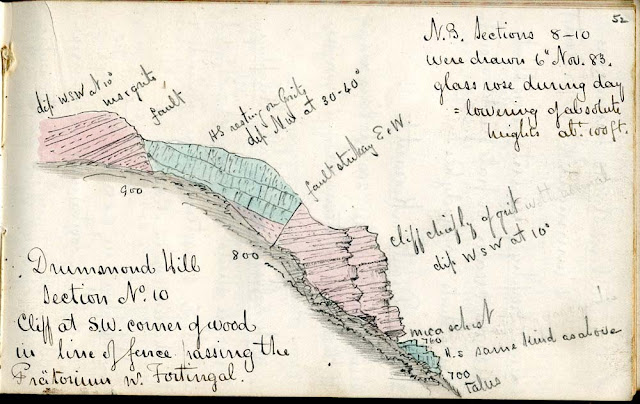 52
N.B. Sections 8-10
were drawn 6th Nov. 83.
glass rose during day
= lowering of absolute
heights abt. 100 ft.
dip WSW at 10°
grits
fault
HS resting on Grits
dip NW at 30-40°
fault striking E & W.
900
800
Cliff chiefly of grit
dip WSW at 10°
mica schist
760
H.S same kind as above
700
Talus
Drummond Hill
Section No. 10
Cliff at S.W. corner of wood
in line of fence passing the
Prætorium nr. Fortingal.